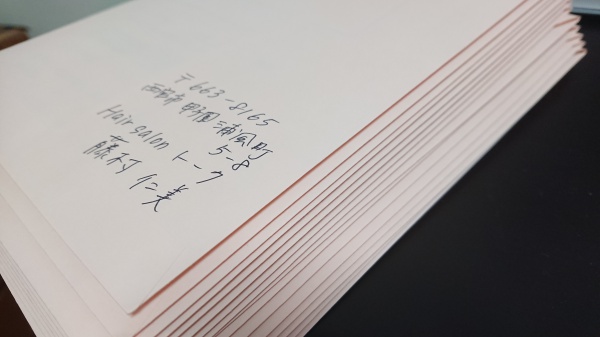 〒663-8165
西宮市 甲子園浦風町
5-8
Hair salon トーク
藤村 仁美